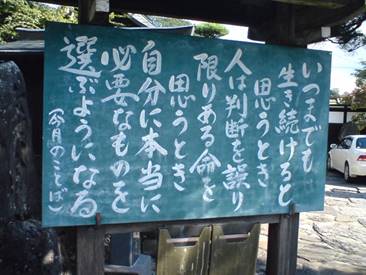 いつまでも
生き続けると
思うとき
人は判断を誤り
限りある命を
思うとき
自分に本当に
必要なものを
選ぶようになる
今月のことば